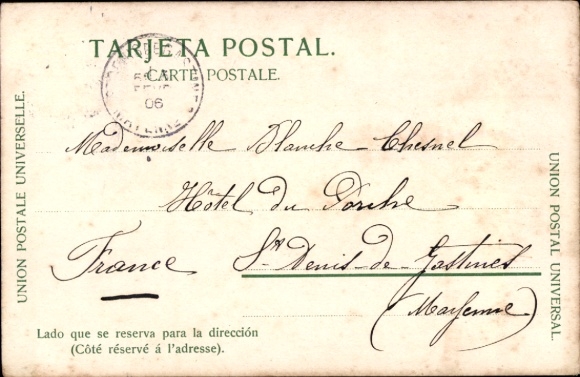 TARJETA POSTAL.
CARTE POSTALE.
06
MAYENNE
Mademoiselle Blanche Chesnel
Hôtel du Porche
France St Denis-de-Gastines
(Mayenne)
UNION POSTALE UNIVERSELLE.
UNION POSTAL UNIVERSAL.
Lado que se reserva para la dirección
(Côté réservé á l'adresse).